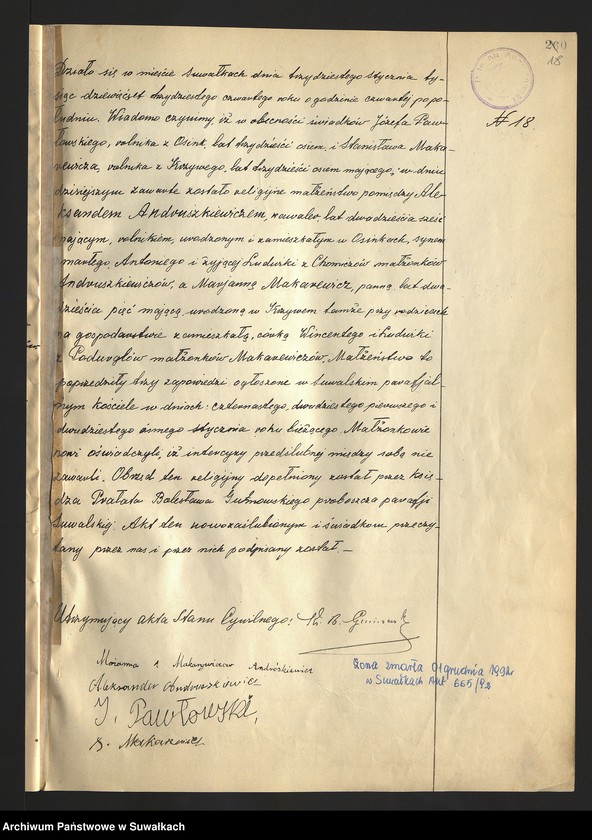 260
18
№ 18.
Działo się w mieście Suwałkach dnia trzydziestego stycznia ty-
siąc dziewięćset trzydziestego czwartego roku o godzinie czwartej popo-
łudniu. Wiadomo czynimy, iż w obecności świadków Józefa Paw-
łowskiego, rolnika z Osink, lat trzydzieści osiem, i Stanisława Maka-
rewicza, rolnika z Krzywego, lat trzydzieści osiem mającego, w dniu
dzisiejszym zawarte zostało religijne małżeństwo pomiędzy Ale-
ksandrem Andruszkiewiczem, kawaler, lat dwadzieścia sześć
mającym, rolnikiem, urodzonym i zamieszkałym w Osinkach, synem
zmarłego Antoniego i żyjącej Ludwiki z Chomczów małżonków
Andruszkiewiczów, a Marjanną Makarewicz, panną, lat dwa-
dzieścia pięć mającą, urodzoną w Krzywem tamże przy rodzicach
na gospodarstwie zamieszkałą, córką Wincentego i Ludwiki
z Podurgłów małżonków Makarewiczów. Małżeństwo to
poprzedziły trzy zapowiedzi ogłoszone w Suwalskim parafjal-
nym kościele w dniach: czternastego, dwudziestego pierwszego i
dwudziestego ósmego stycznia roku bieżącego. Małżonkowie
nowi oświadczyli, iż intercyzy przedślubnej między sobą nie
zawarli. Obrzęd ten religijny dopełniony został przez księ-
dza Prałata Bolesława Gumowskiego proboszcza parafji
Suwalskiej. Akt ten nowozaślubionym i świadkom przeczy-
tany przez nas i przez nich podpisany został. —
Utrzymujący akta Stanu Cywilnego: Ks. B.
Marianna z Makarewiczów Andróśkiewicz
Aleksander Andruszkiewicz
J. Pawłowski,
S. Makarewicz
Żona zmarła 01 grudnia 1992r
w Suwałkach Akt 665/92
Archiwum Państwowe w Suwałkach